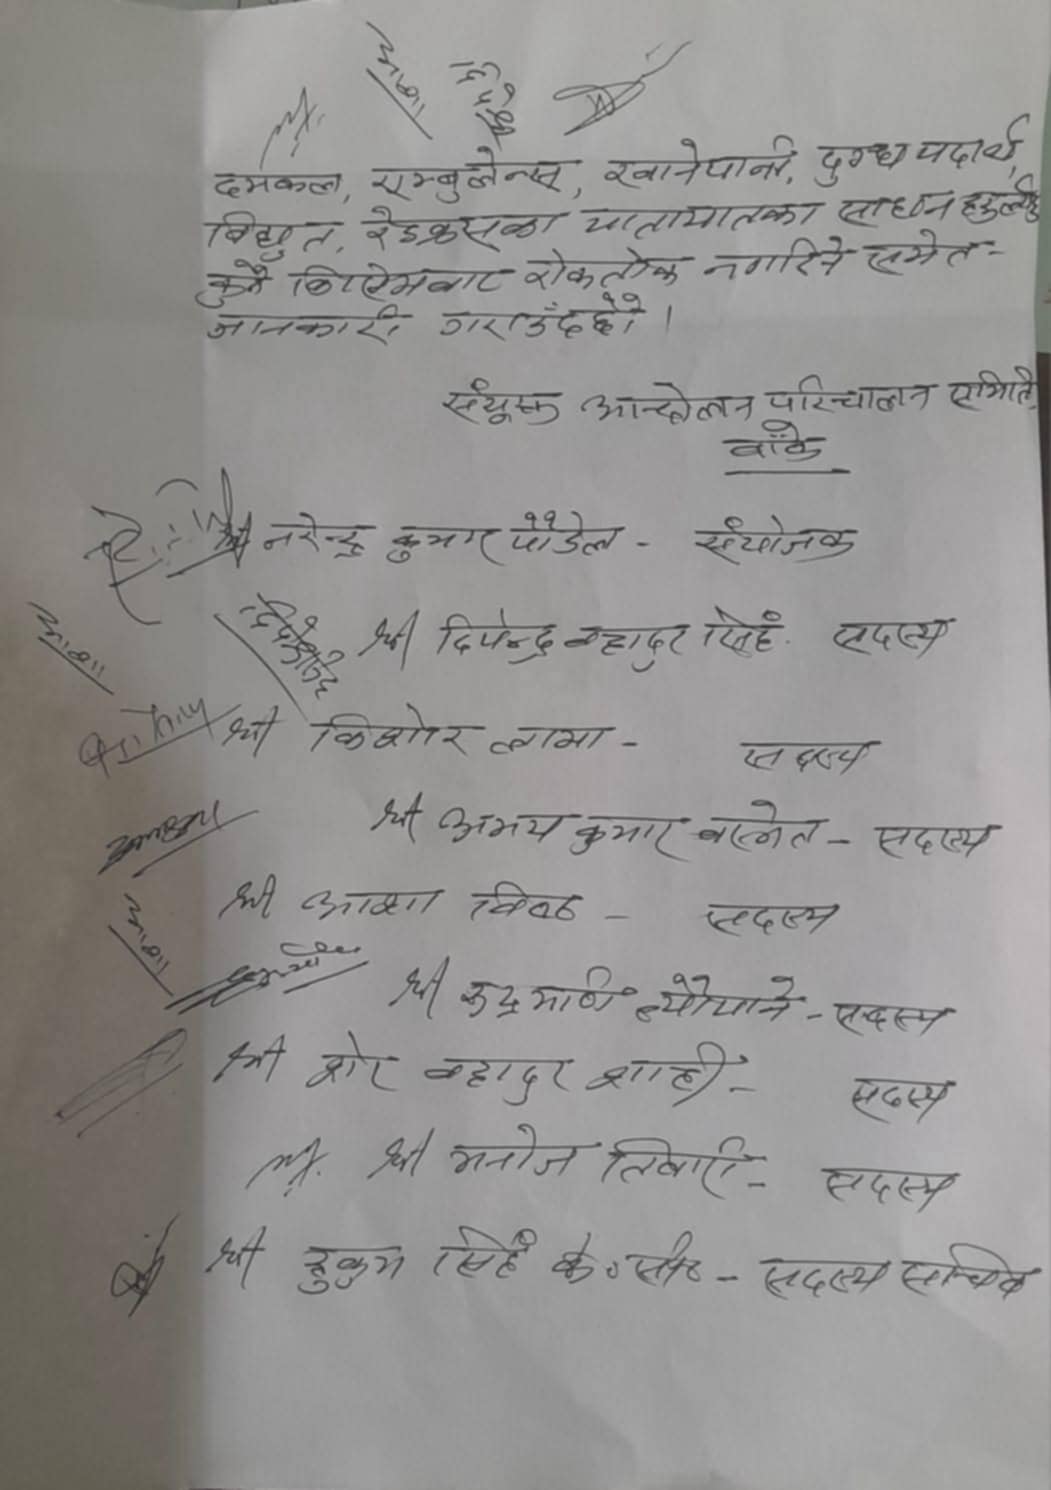 दमकल, एम्बुलेन्स, खानेपानी, दुग्ध पदार्थ,
विद्युत, रेडक्रसका यातायातका साधन हरुलाई
कुनै किसिमबाट रोकतोक नगरिने समेत -
जानकारी गराउँदछौं ।
संयुक्त आन्दोलन परिचालन समिति,
बाँके
श्री नरेन्द्र कुमार पौडेल - संयोजक
श्री दिपेन्द्र बहादुर सिहं. सदस्य
श्री किशोर लामा - सदस्य
श्री अभय कुमार - सदस्य
श्री आशा विक - सदस्य
श्री रुद्रमणी न्यौपाने - सदस्य
श्री शेर बहादुर शाही - सदस्य
श्री मनोज तिवारी - सदस्य
श्री हुकुम सिहं के.सी. - सदस्य सचिव